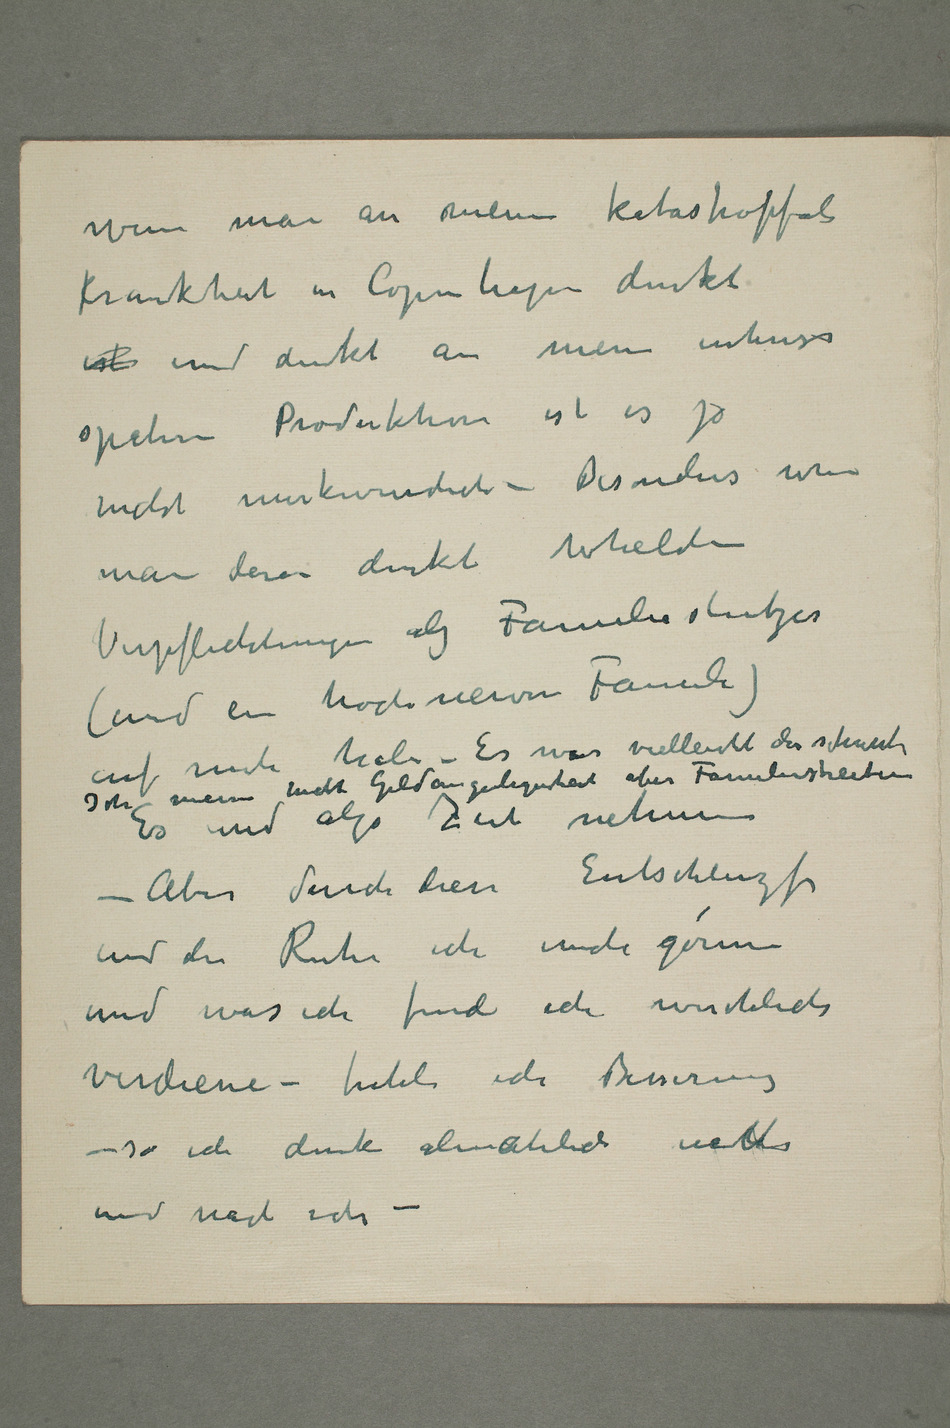 wenn man an meine katastroffale
Krankheit in Copenhagen denkt
ist und denkt an meine intensse
spatere Produktion ist es jo
nicht merkwurdich – Besonders wenn
man daran denkt welche
Verpflichtungen als Familiestutzer
(und ein hochnervøse Familie)
auf mich habe – Es war vielleicht das schwerste
Ich meine nicht Geldangelegenheit aber Familienstreiten
Es wird also Zeit nehmen
– Aber durch diese Entschlusse
und die Ruhe ich mich gönne
und was ich finde ich wirchlich
verdiene – fuhle ich Besserung
– so ich denke almæhlich
und nach ich –